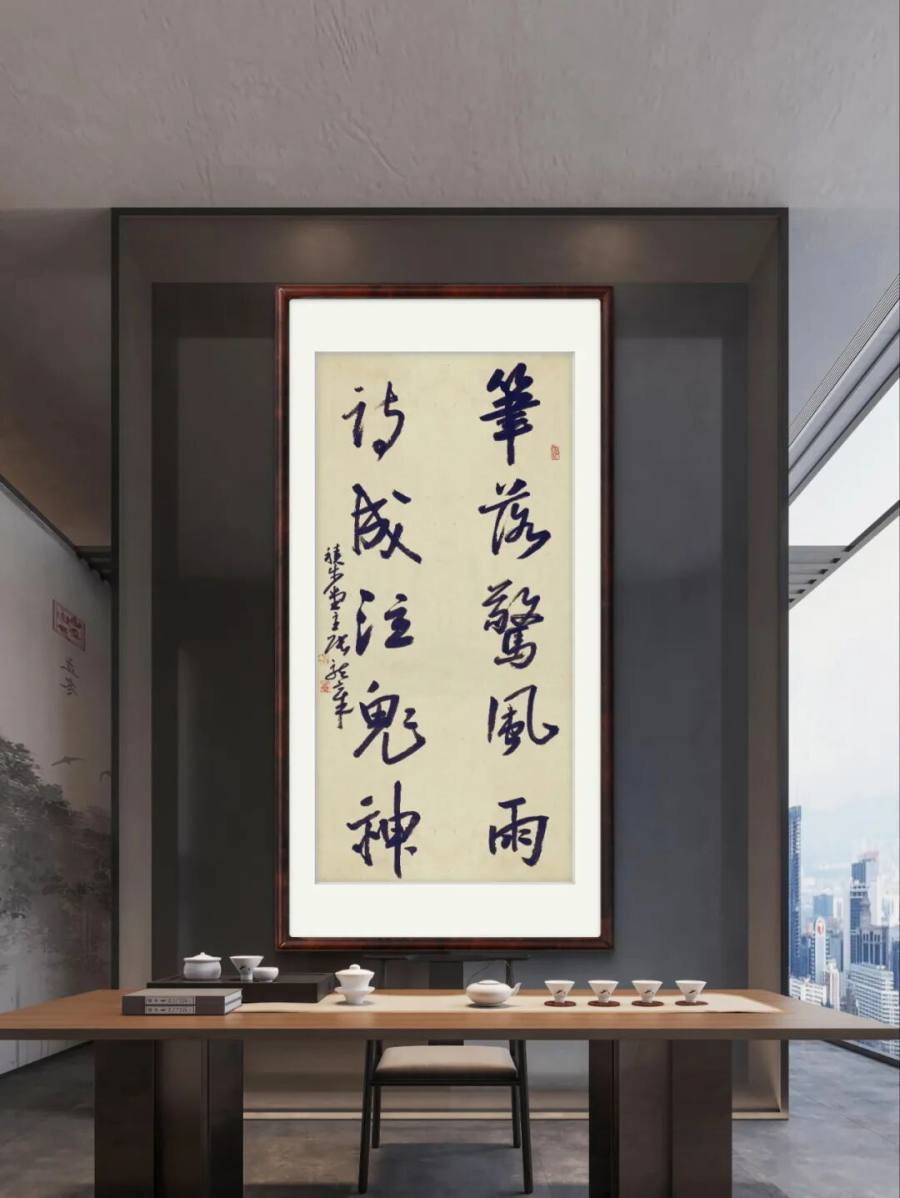 筆落驚風雨
詩成泣鬼神
堂主